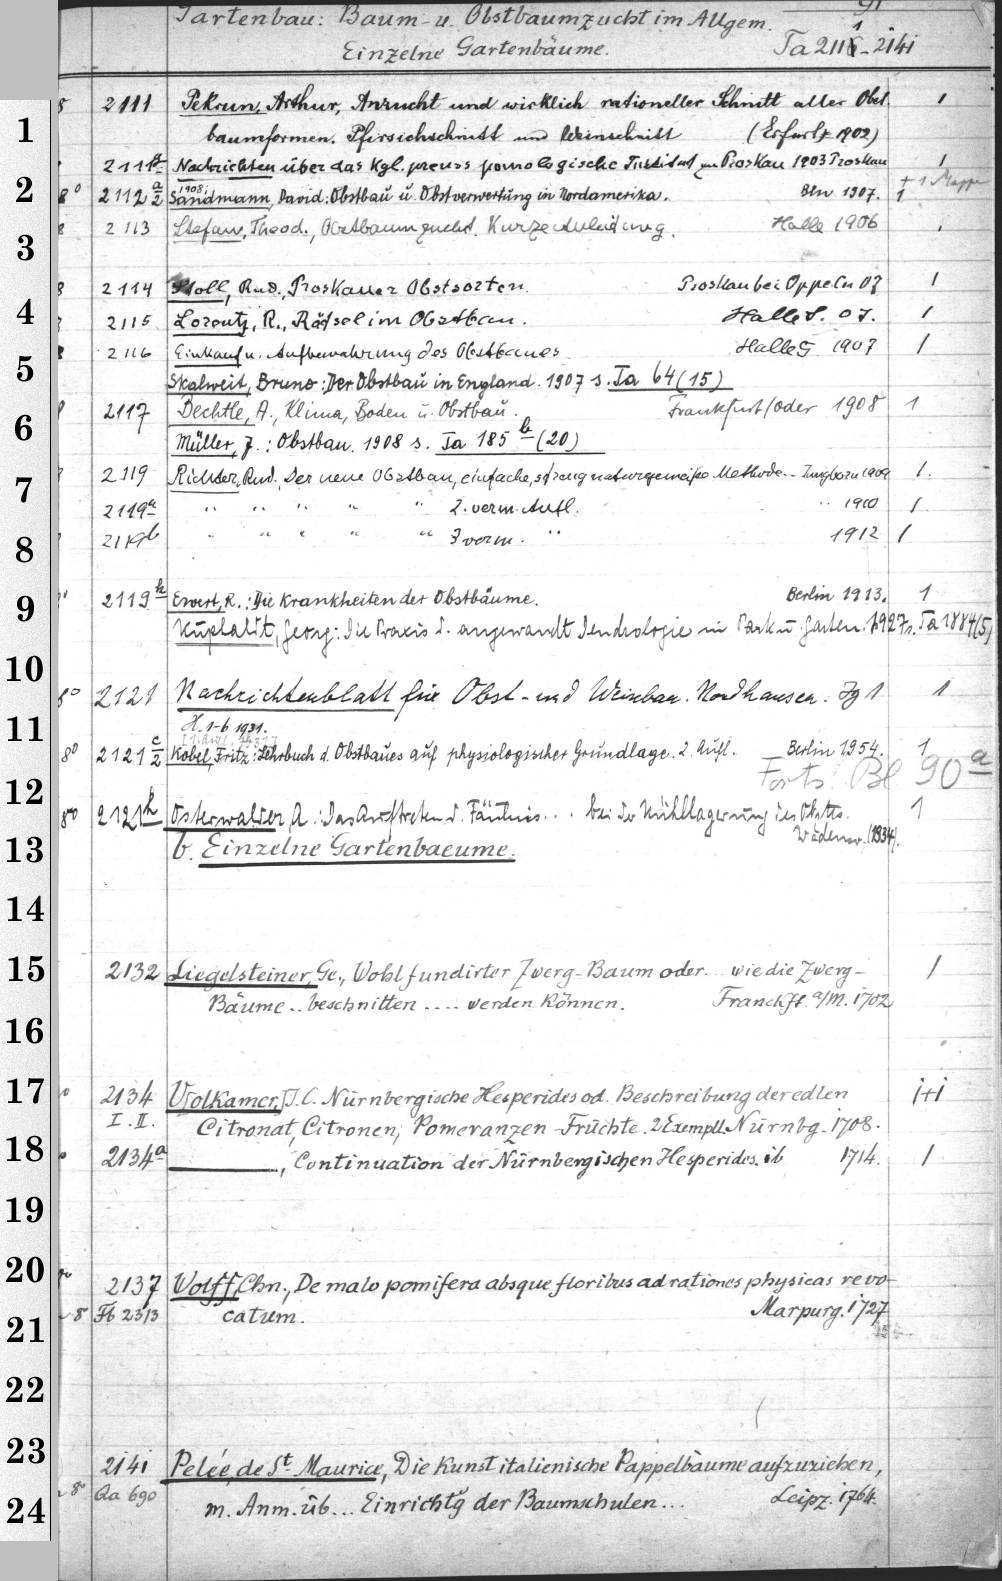 91
Gartenbau: Baum- u. Obstbaumzucht im Allgem.
Einzelne Gartenbäume. Ta 2111-2141
1
8 2111 Pekrun, Arthur, Anzucht und wirklich rationeller Schnitt aller Obst- 1
baumformen. Pfirsichschnitt und Weinschnitt (Erfurt 1902)
2111a Nachrichten über das Kgl. preuss pomologische Institut zu Proskau 1903 Proskau 1
2
1908 + 1 Mappe
8° 2112 a/2 Sandmann, David: Obstbau u. Obstverwertung in Nordamerika. Bln 1907. 1
8 2113 Stefan, Theod., Obstbaumzucht. Kurze Anleitung. Halle 1906 1
3
8 2114 Stoll, Rud., Proskauer Obstsorten. Proskau bei Oppeln 07 1
4
2115 Lorentz, R., Rätsel im Obstbau. Halle S. 07. 1
8 2116 Einkauf u. Aufbewahrung des Obstbaues Halle S 1907 1
5
Skalweit, Bruno: Der Obstbau in England. 1907 s. Ta 64 (15)
2117 Bechtle, A., Klima, Boden u. Obstbau. Frankfurt/Oder 1908 1
6
Müller, J.: Obstbau. 1908 s. Ta 185 b (20)
2119 Richter, Rud., Der neue Obstbau, einfache, streng naturgemäße Methode.- Jungborn 1909 1.
7
2119a " " " " " 2. verm. Aufl. " 1910 1
2119b " " " " " 3 verm. " 1912 1
8
2119h Ewert, R.: Die Krankheiten der Obstbäume. Berlin 1913. 1
9
Kuphaldt, Georg: Die Praxis d. angewandt Dendrologie in Park u. Garten. 1927 s. Ta 1884(5)
10
8° 2121 Nachrichtenblatt für Obst- und Weinbau. Nordhausen. Jg 1 1
H. 1-6 1931.
11
8° 2121 c/2 Kobel, Fritz: Lehrbuch d. Obstbaues auf physiologischer Grundlage. 2. Aufl. Berlin 1954. 1
Forts. Bl 90a
12
8° 2121h Osterwalder, A.: Das Auftreten d. Fäulnis... bei der Kühllagerung des Obstes. 1
Wädensw. (1934).
13
b. Einzelne Gartenbaeume.
14
15
2132 Liegelsteiner, Ge., Wohlfundirter Zwerg-Baum oder... wie die Zwerg- 1
Bäume.. beschnitten .... werden können. Franckft. a/M. 1702
16
17
2134 Volkamer, J. C. Nürnbergische Hesperides od. Beschreibung der edlen 1+1
I. II. Citronat, Citronen, Pomeranzen-Früchte. 2 Exempll. Nürnbg. 1708.
18
2134a ———, Continuation der Nürnbergischen Hesperides. ib 1714. 1
19
20
2137 Wolff, Chn., De malo pomifera absque floribus ad rationes physicas revo-
8 Fb 2313 catum. Marpurg. 1727
21
22
23
2141 Pelée de St. Maurice, Die Kunst italienische Pappelbäume aufzuziehen,
8° Oa 690 m. Anm. üb... Einrichtg der Baumschulen... Leipz. 1764.
24